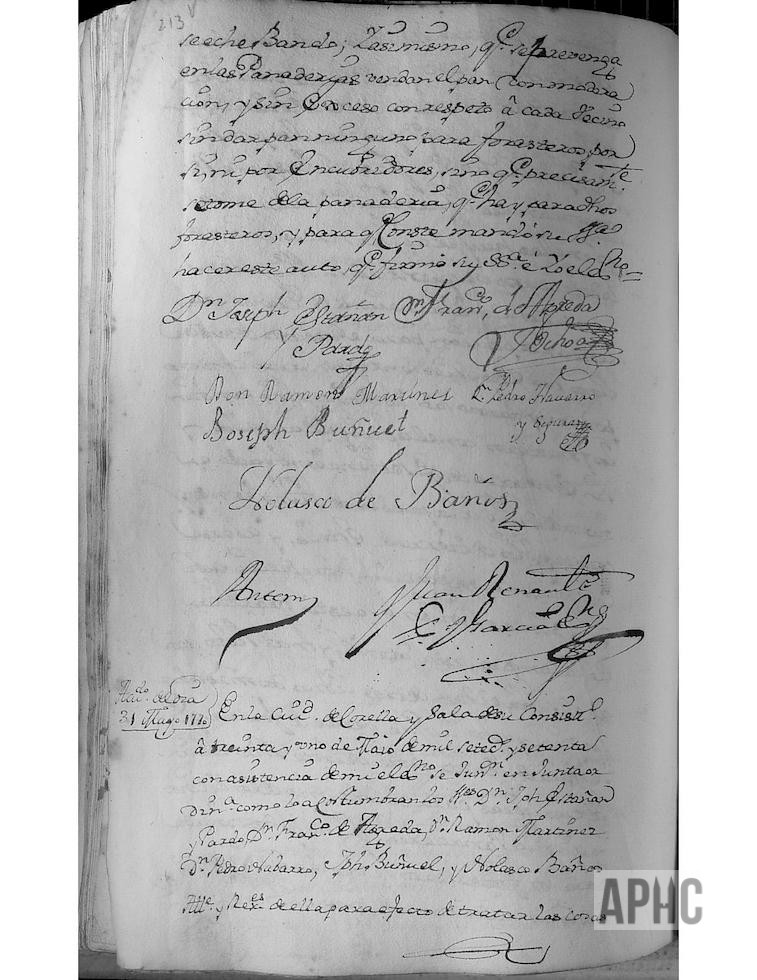 213 v
se eche Bando; Y asimismo, q.e se prevenga
en las Panaderias vendan el pan con modera
cion, y sin Exceso con respeto â cada Vecino
sin dar pan ninguno para forasteros, por
si, ni por Encubridores, sino q.e precisam.te
se tome de la panaderia, q.e hay para dhos
forasteros, y para q.e Conste mandó su S.a
hacer este auto q.e firmó su SS.a è Yo el ess.no =
D.n Joseph Estañan D.n Fran.co de Agreda
y Pardo y Ochoa
Don Ramon Martinez D.n Pedro Navarro
Joseph Buñuel y Segura
Nolasco de Baños
Antem Juan Renault
y Garcia ess.no
Au.do del dia
31 Mayo 1770
En la Ciu.d de Corella y Sala de su Consist.o
â treinta y uno de Maio de mil seted.s y setenta
con asistencia de mi el ess.no se Junt.n en Junta or
din.a como lo a Costumbran los S.res D.n Jph Estañan
y Pardo, D.n Fran.co de Agreda, D.n Ramon Martinez
D.n Pedro Nabarro, Jph Buñuel, y Nolasco Baños
All.e y Rex.es de ella para efecto de tratar las cosas
APHC